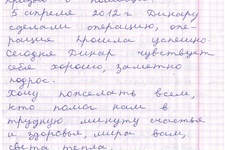 5 апреля 2012 г Динару
сделали операцию, опе-
рация прошла успешно.
Сегодня Динар чувствует
себя хорошо, заметно
подрос.
Хочу пожелать всем,
кто помог нам в
трудную минуту счастья
и здоровья, мира вам,
света тепла.